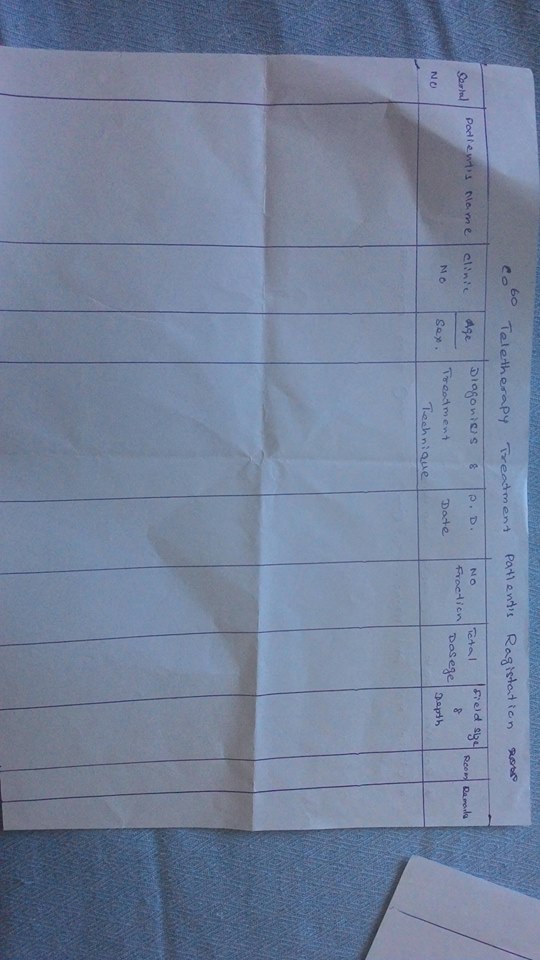 Co60 Teletherapy Treatment Patient's Ragistation
Serial No
Patient's Name
Clinic No
Age
Sex.
Diagonisis &
Treatment
Technique
P.D.
Date
No
Fraction
Total
Dosege
Field Size
&
Depth
Room
Remarks